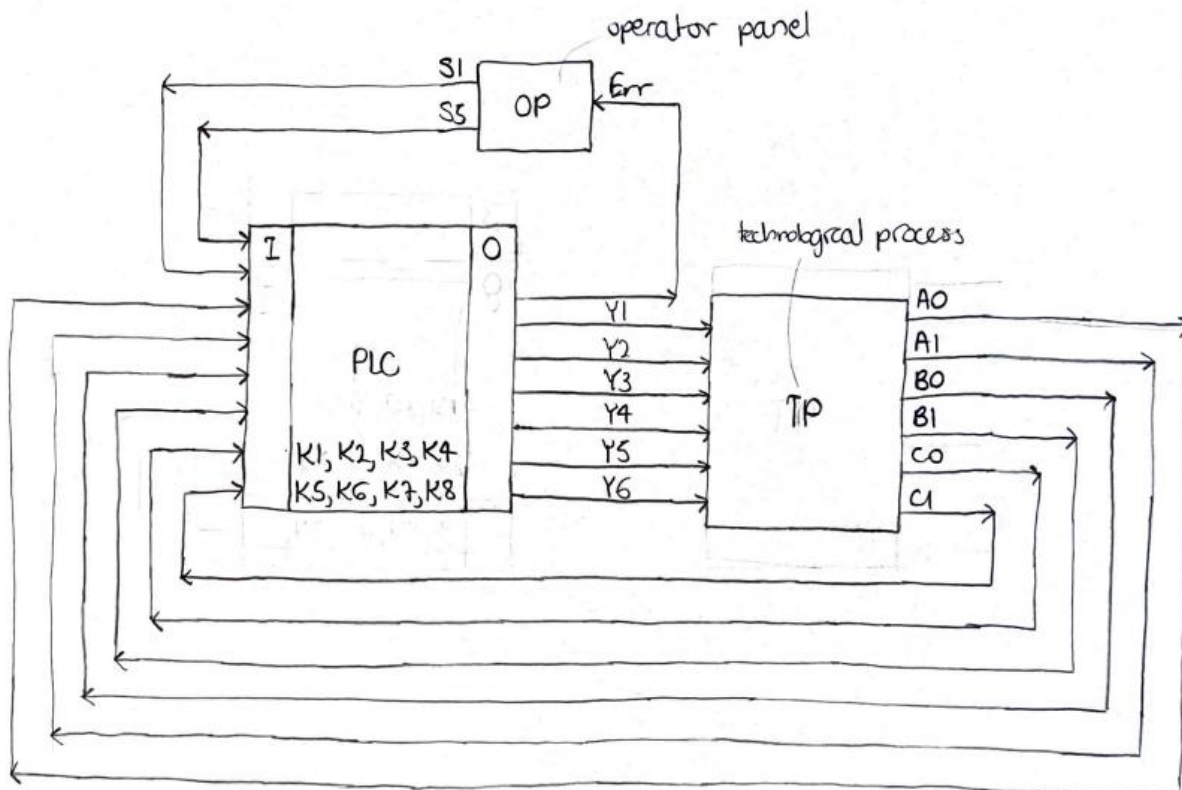 operator panel
S1
S5
OP
Err
I
O
technological process
PLC
K1, K2, K3, K4
K5, K6, K7, K8
Y1
Y2
Y3
Y4
Y5
Y6
TP
A0
A1
B0
B1
C0
C1